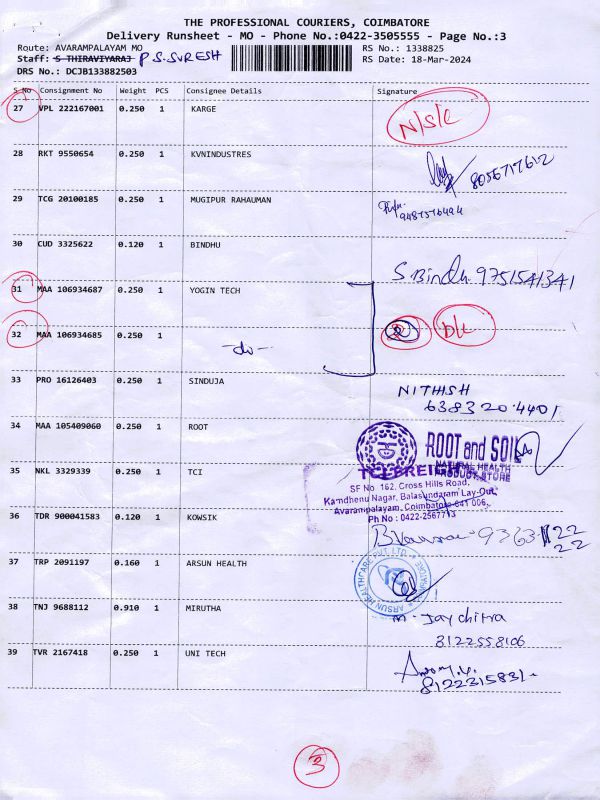 THE PROFESSIONAL COURIERS, COIMBATORE
Delivery Runsheet - MO - Phone No.:0422-3505555 - Page No.:3
Route: AVARAMPALAYAM MO RS No.: 1338825
Staff: S THIRAVIYARAJ P S.SURESH RS Date: 18-Mar-2024
DRS No.: DCJB133882503
S No Consignment No Weight PCS Consignee Details Signature
27 VPL 222167001 0.250 1 KARGE N/S/L
28 RKT 9550654 0.250 1 KVNINDUSTRES 8056717612
29 TCG 20100185 0.250 1 MUGIPUR RAHAUMAN
9487576494
30 CUD 3325622 0.120 1 BINDHU S.Bindu 9751541341
31 MAA 106934687 0.250 1 YOGIN TECH
32 MAA 106934685 0.250 1 -do- 2 D/L
33 PRO 16126403 0.250 1 SINDUJA NITHISH
6383204401
34 MAA 105409060 0.250 1 ROOT ROOT and SOIL
NATURAL HEALTH
PRODUCT STORE
35 NKL 3329339 0.250 1 TCI TCI FREIGHT
SF No. 162, Cross Hills Road,
Kamdhenu Nagar, Balasundaram Lay-Out,
Avarampalayam, Coimbatore-641 006.
Ph No : 0422-2567713
36 TDR 900041583 0.120 1 KOWSIK 9363 22
22
37 TRP 2091197 0.160 1 ARSUN HEALTH ARSUN HEALTHCARE PVT. LTD. COIMBATORE
38 TNJ 9688112 0.910 1 MIRUTHA M. Jaychitra
8122558106
39 TVR 2167418 0.250 1 UNI TECH
8122315831
3